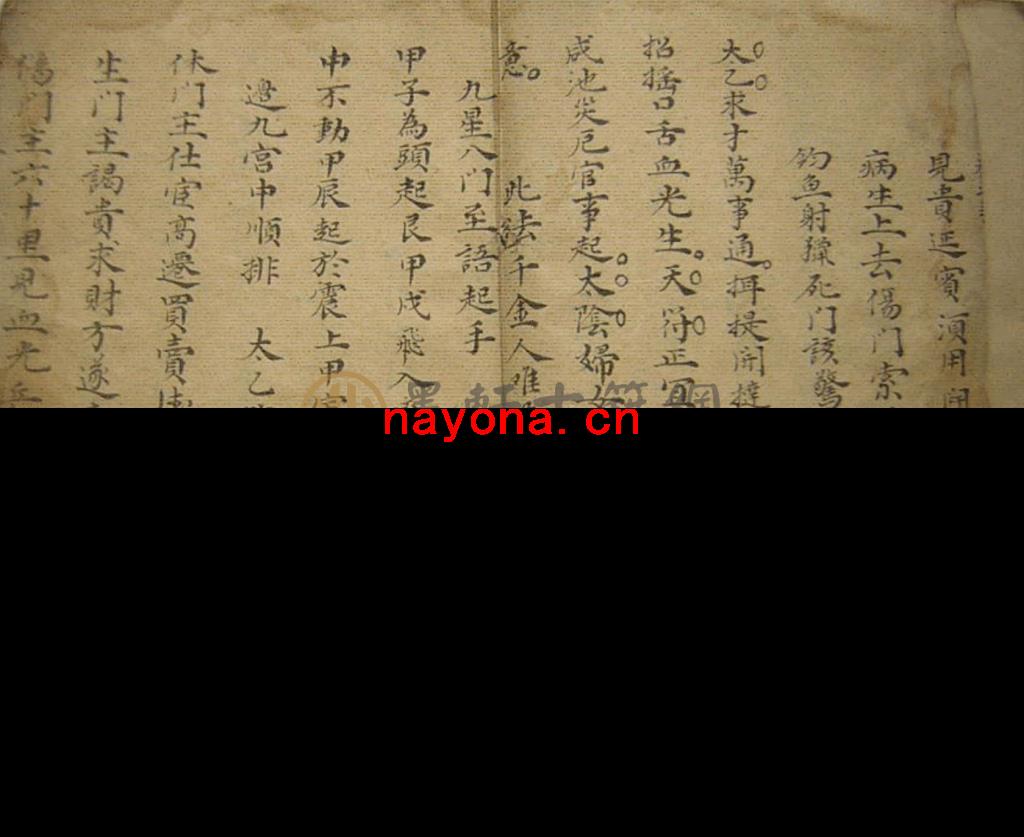 見貴延賓須用開
病生上去傷門索
釣魚射獵死門該驚
太乙求才萬事通。揖提開
招搖口舌血光生。天符正官
咸池災厄官事起。太陰婦女
意。 此法千金人难
九星八門至語起手
甲子為頭起艮甲戌飛入
中不動甲辰起於震上甲寅
邊九宮中順排 太乙
休門主仕宦高遷買賣
生門主謁貴求財方遂
傷門主六十里見血光
nayona.cn